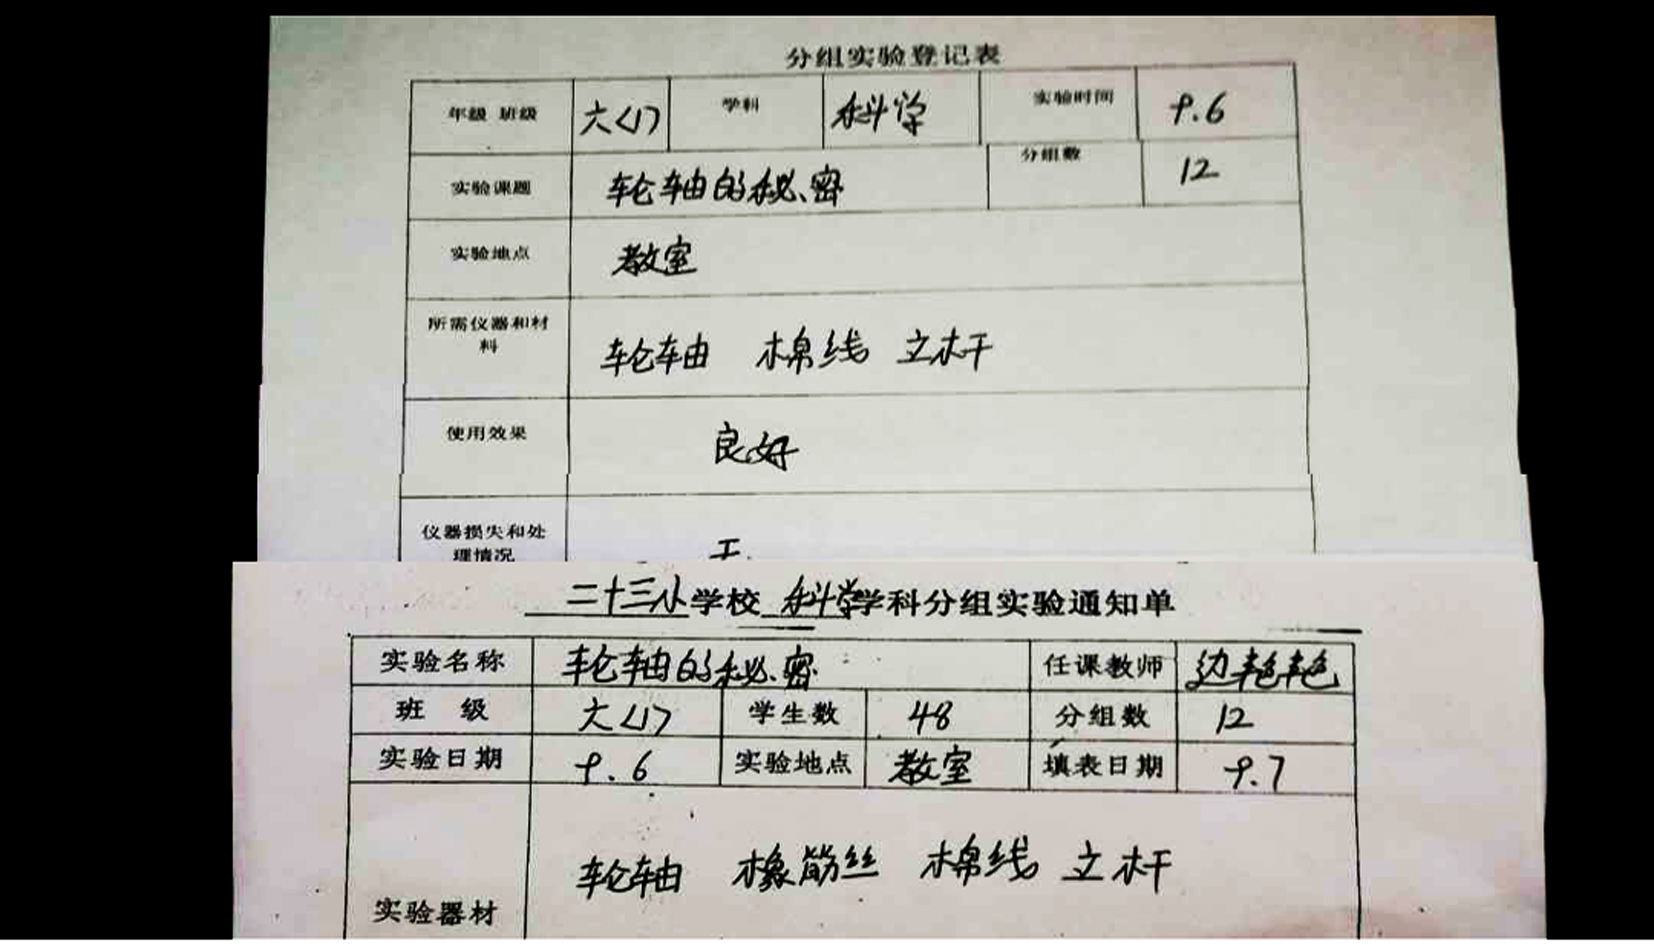 分组实验登记表
年级 班级 六(1) 学科 科学 实验时间 9.6
实验课题 轮轴的秘密 分组数 12
实验地点 教室
所需仪器和材
料
轮轴 棉线 立杆
使用效果 良好
仪器损失和处
理情况
二十三小学校 科学学科分组实验通知单
实验名称 轮轴的秘密 任课教师 边艳艳
班 级 六(1) 学生数 48 分组数 12
实验日期 9.6 实验地点 教室 填表日期 9.7
轮轴 橡筋丝 棉线 立杆
实验器材